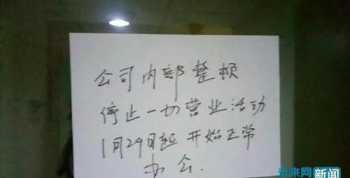 公司内部整顿
停止一切营业活动
1月29日起开始正常
办公.
未来网
新闻